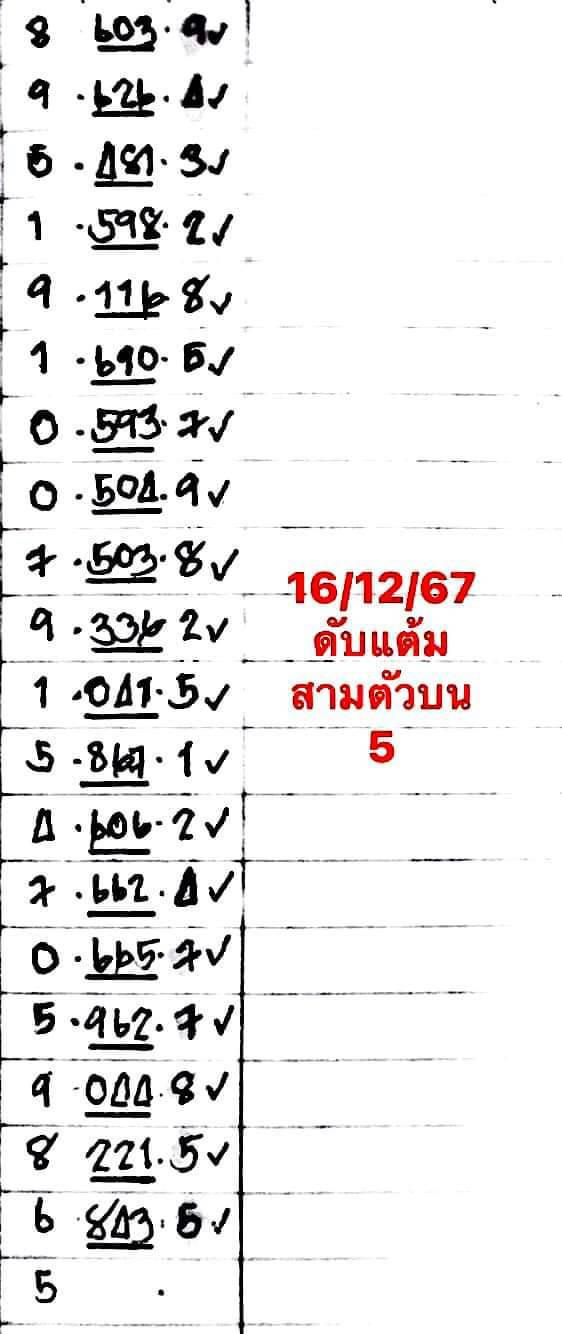 8 603. 9✓
9 .626. 4✓
5 .481. 3✓
1 .598. 2✓
9 .116 8✓
1 .690. 5✓
0 .593. 7✓
0 .504. 9✓
7 .503. 8✓
9 .336 2✓
1 .041. 5✓
5 .867. 1✓
4 .606. 2✓
7 .662. 4✓
0 .665. 7✓
5 .962. 7✓
9 .044. 8✓
8 221. 5✓
6 .843. 5✓
5 .
16/12/67
ดับแต้ม
สามตัวบน
5